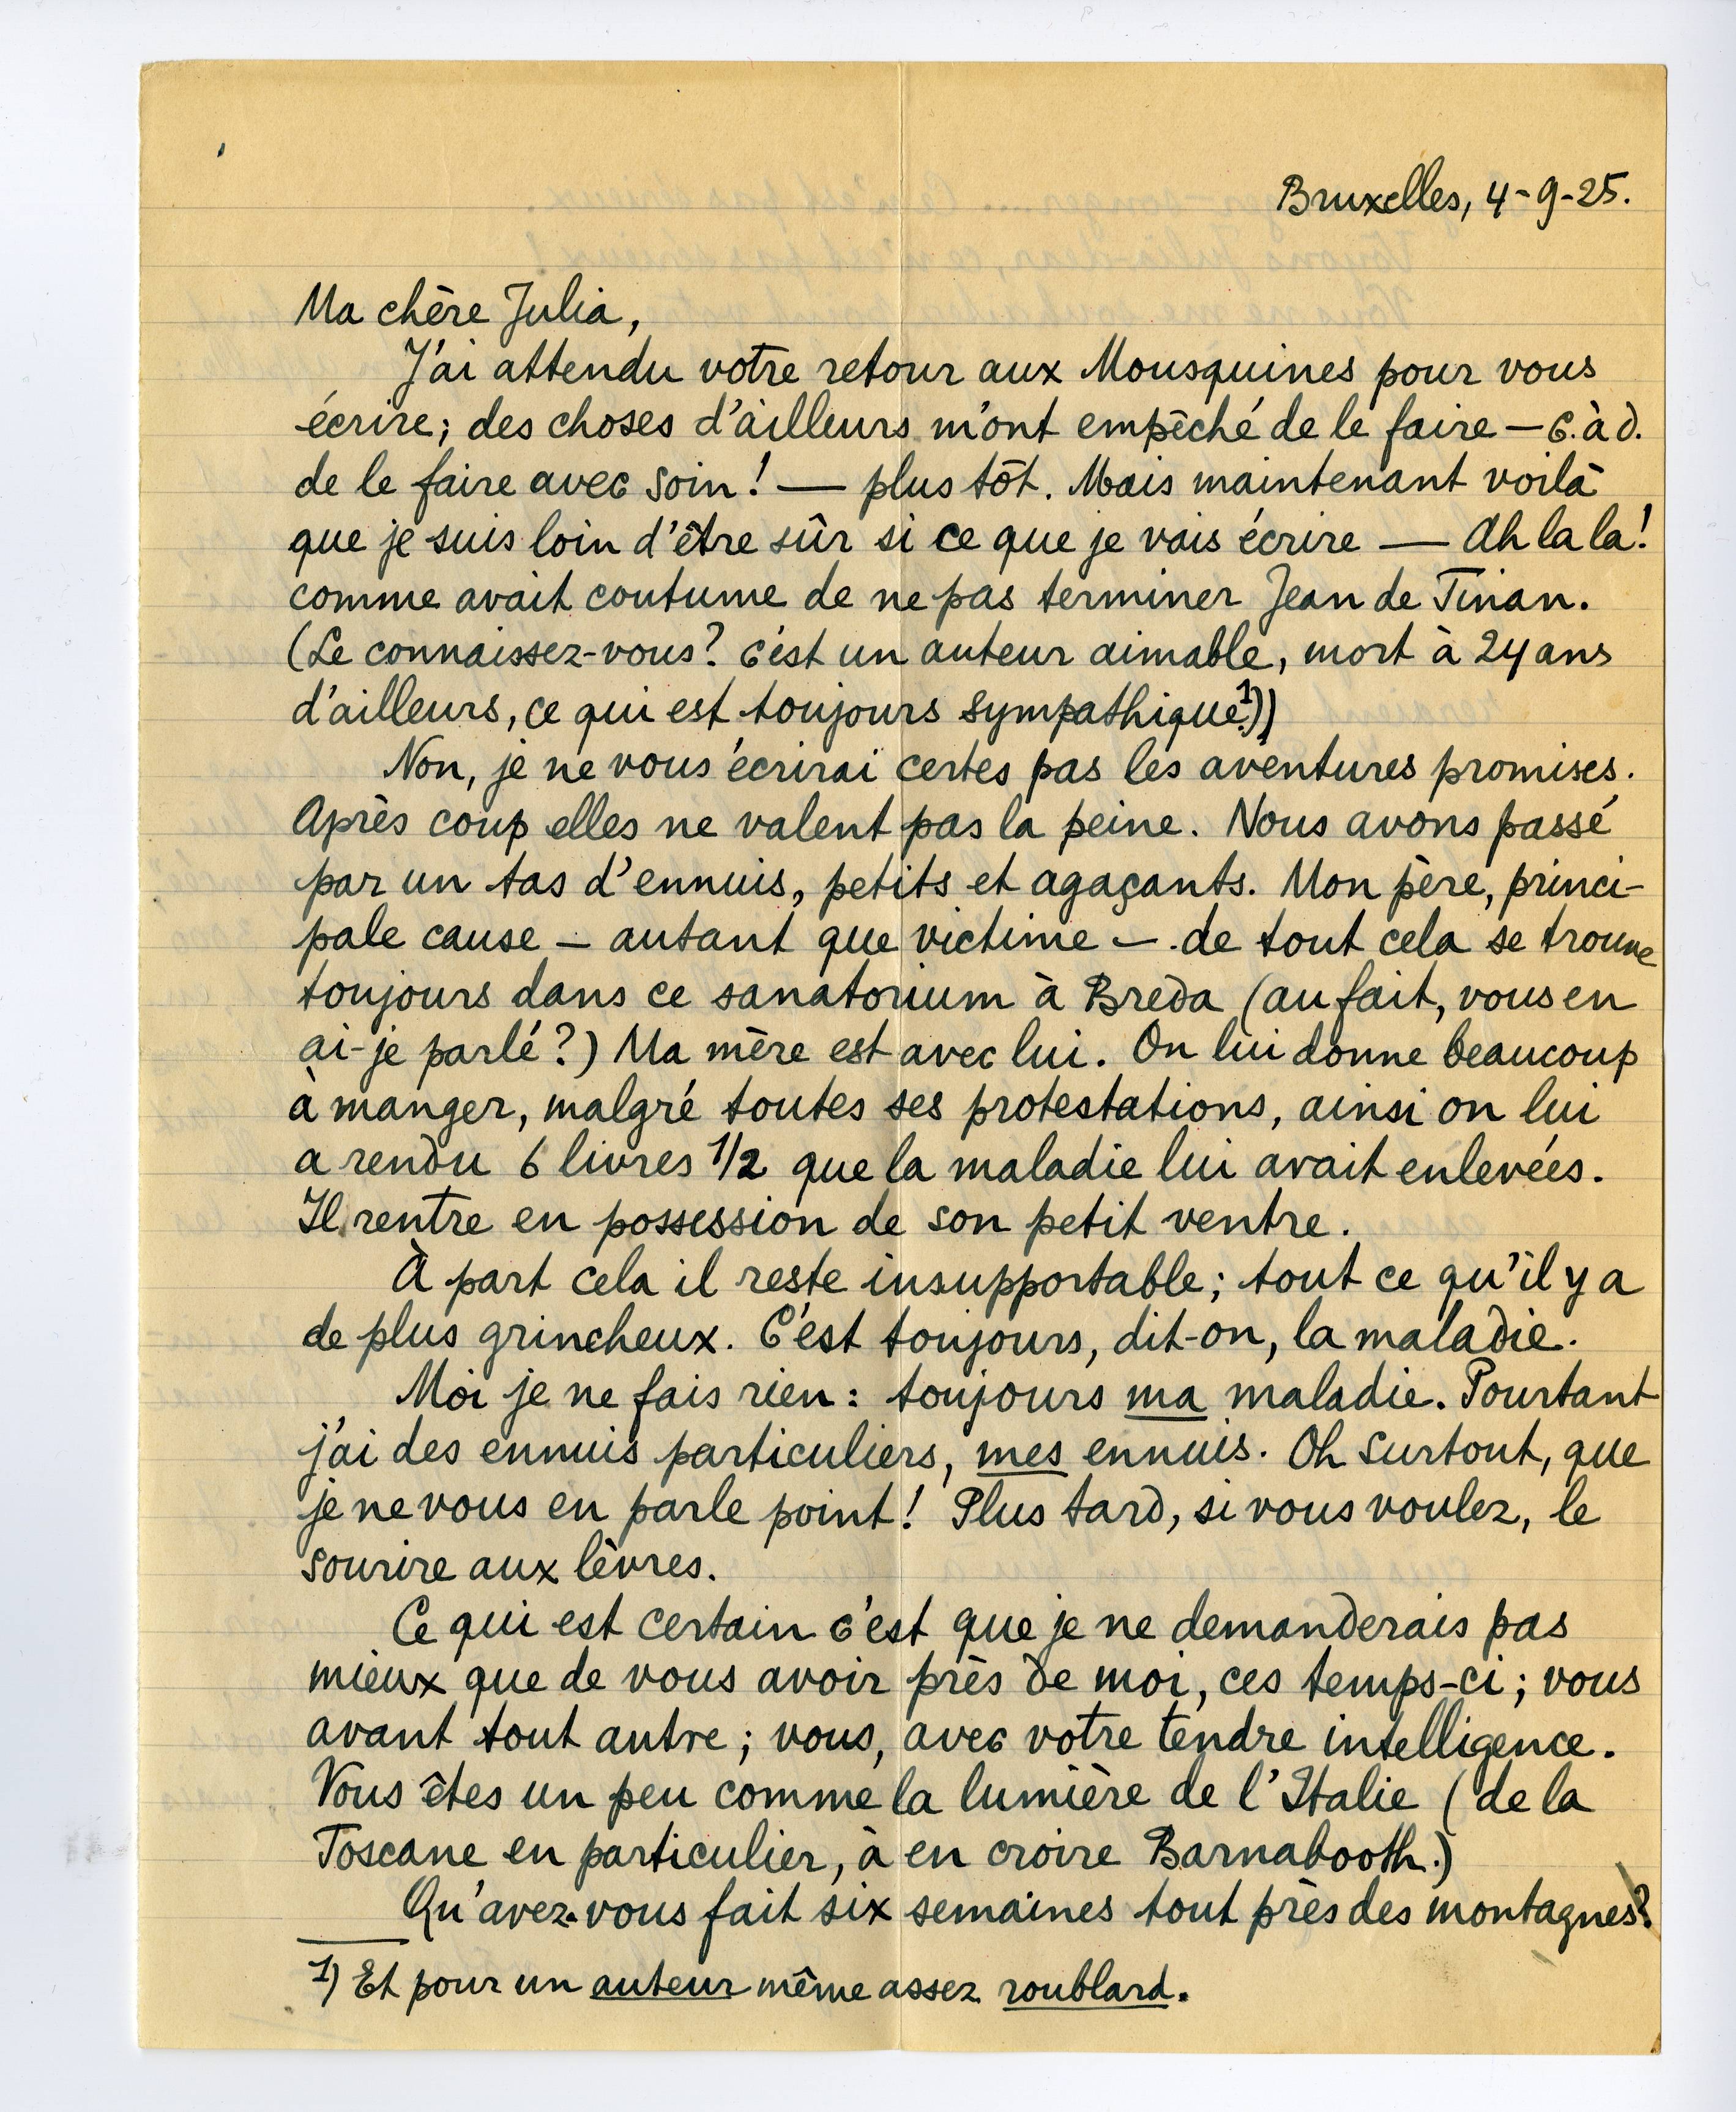 Bruxelles, 4-9-25.
Ma chère Julia,
J'ai attendu votre retour aux Mousquines pour vous
écrire; des choses d'ailleurs m'ont empêché de le faire — c.à d.
de le faire avec soin! — plus tôt. Mais maintenant voilà
que je suis loin d'être sûr si ce que je vais écrire — Ah la la!
comme avait coutume de ne pas terminer Jean de Tinan.
(Le connaissez-vous? c'est un auteur aimable, mort à 24 ans
d'ailleurs, ce qui est toujours sympathique.1))
Non, je ne vous écrirai certes pas les aventures promises.
Après coup elles ne valent pas la peine. Nous avons passé
par un tas d'ennuis, petits et agaçants. Mon père, princi-
pale cause — autant que victime — de tout cela se trouve
toujours dans ce sanatorium à Breda (au fait, vous en
ai-je parlé?) Ma mère est avec lui. On lui donne beaucoup
à manger, malgré toutes ses protestations, ainsi on lui
a rendu 6 livres 1/2 que la maladie lui avait enlevées.
Il rentre en possession de son petit ventre.
À part cela il reste insupportable; tout ce qu'il y a
de plus grincheux. C'est toujours, dit-on, la maladie.
Moi je ne fais rien: toujours ma maladie. Pourtant
j'ai des ennuis particuliers, mes ennuis. Oh surtout, que
je ne vous en parle point! Plus tard, si vous voulez, le
sourire aux lèvres.
Ce qui est certain c'est que je ne demanderais pas
mieux que de vous avoir près de moi, ces temps-ci; vous
avant tout autre; vous, avec votre tendre intelligence.
Vous êtes un peu comme la lumière de l'Italie (de la
Toscane en particulier, à en croire Barnabooth.)
Qu'avez-vous fait six semaines tout près des montagnes?
1) Et pour un auteur même assez roublard.